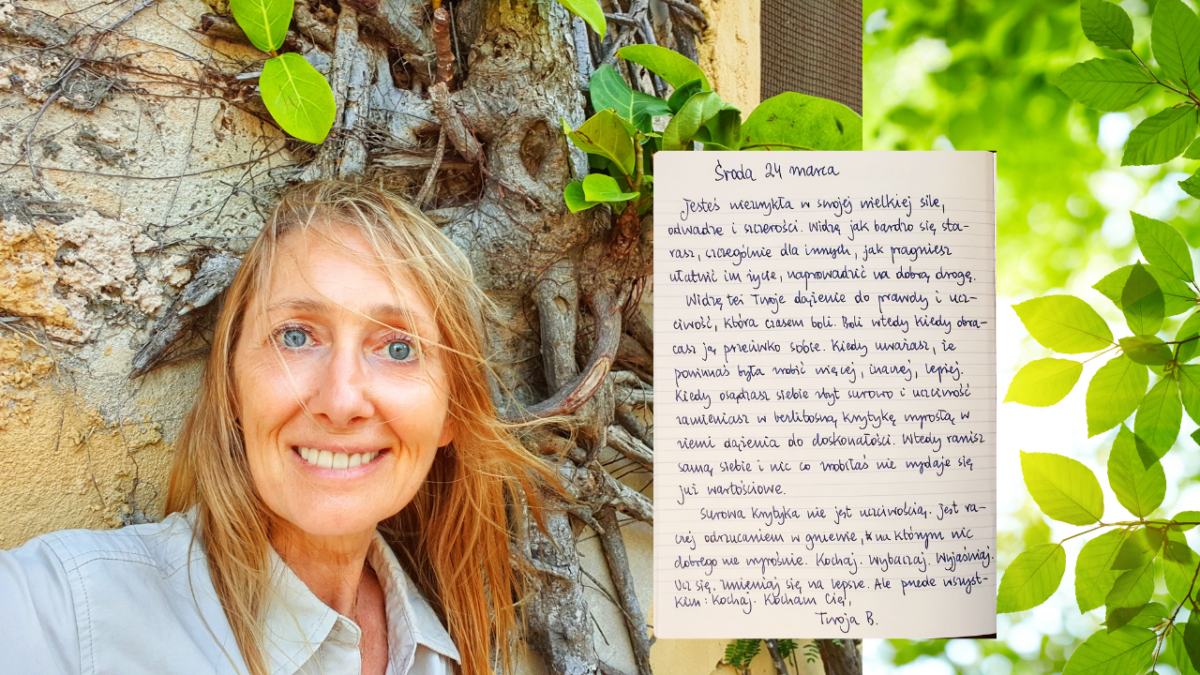 Środa 24 marca
Jesteś niezwykła w swojej wielkiej sile,
odwadze i szczerości. Widzę jak bardzo się sta-
rasz, szczególnie dla innych, jak pragniesz
ułatwić im życie, naprowadzić na dobrą drogę.
Widzę też Twoje dążenie do prawdy i ucz-
ciwość, która czasem boli. Boli wtedy kiedy obra-
casz ją przeciwko sobie. Kiedy uważasz, że
powinnaś była zrobić więcej, inaczej, lepiej.
Kiedy osądzasz siebie zbyt surowo i uczciwość
zamieniasz w bezlitosną krytykę wyrosłą w
ziemi dążenia do doskonałości. Wtedy ranisz
samą siebie i nic co zrobiłaś nie wydaje się
już wartościowe.
Surowa krytyka nie jest uczciwością. Jest ra-
czej odrzucaniem w gniewie, na którym nic
dobrego nie wyrośnie. Kochaj. Wybaczaj. Wyjaśniaj.
Ucz się, zmieniaj się na lepsze. Ale przede wszyst-
kim: Kochaj. Kocham Cię,
Twoja B.